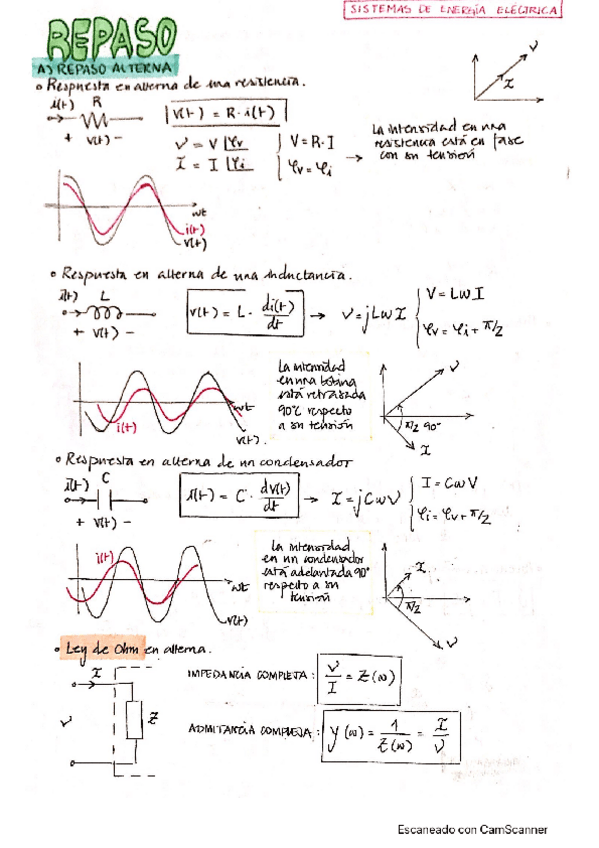 SISTEMAS DE ENERGÍA ELÉCTRICA
REPASO
A) REPASO ALTERNA
• Respuesta en alterna de una resistencia.
i(t) R
+ v(t) -
v(t) = R · i(t)
V = V |φv
I = I |φi
V = R·I
φv = φi
→ La intensidad en una
resistencia está en fase
con su tensión
V
I
wt
i(t)
v(t)
• Respuesta en alterna de una inductancia.
i(t) L
+ v(t) -
v(t) = L · di(t)/dt → V = jLωI
V = LωI
φv = φi + π/2
La intensidad
en una bobina
está retrasada
90º respecto
a su tensión
wt
i(t)
v(t).
V
π/2 90°
I
• Respuesta en alterna de un condensador
i(t) C
+ v(t) -
i(t) = C · dv(t)/dt → I = jCωV
I = CωV
φi = φv + π/2
La intensidad
en un condensador
está adelantada 90°
respecto a su
tensión
i(t)
wt
v(t)
I
π/2
V
• Ley de Ohm en alterna.
I
V
Z
IMPEDANCIA COMPLEJA: V/I = Z(ω)
ADMITANCIA COMPLEJA: Y(ω) = 1/Z(ω) = I/V
Escaneado con CamScanner